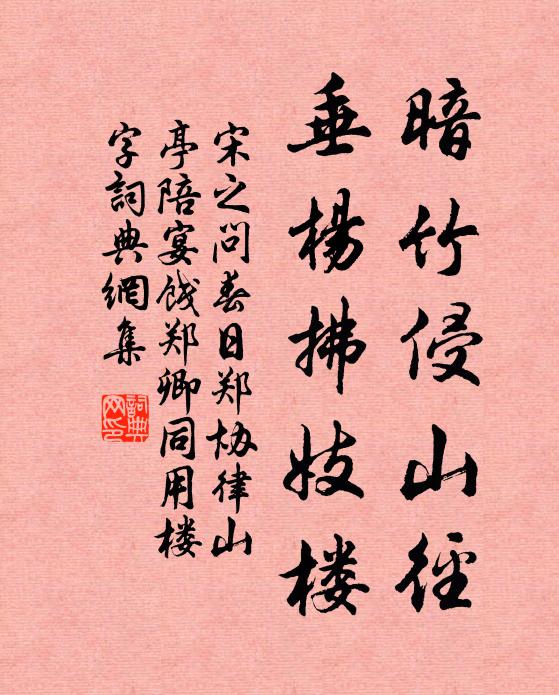 暗竹侵山径
垂楊拂妓楼
宋之问春日郑协律山
亭陪宴饯郑卿同用楼
字詞典網集
詞典網印